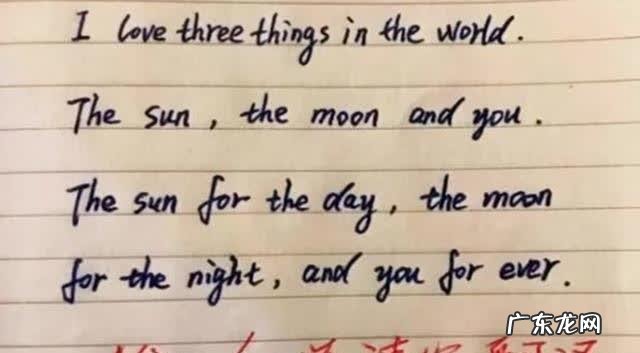 I love three things in the world.
The sun, the moon and you.
The sun for the day, the moon
for the night, and you for ever.
广东龙网